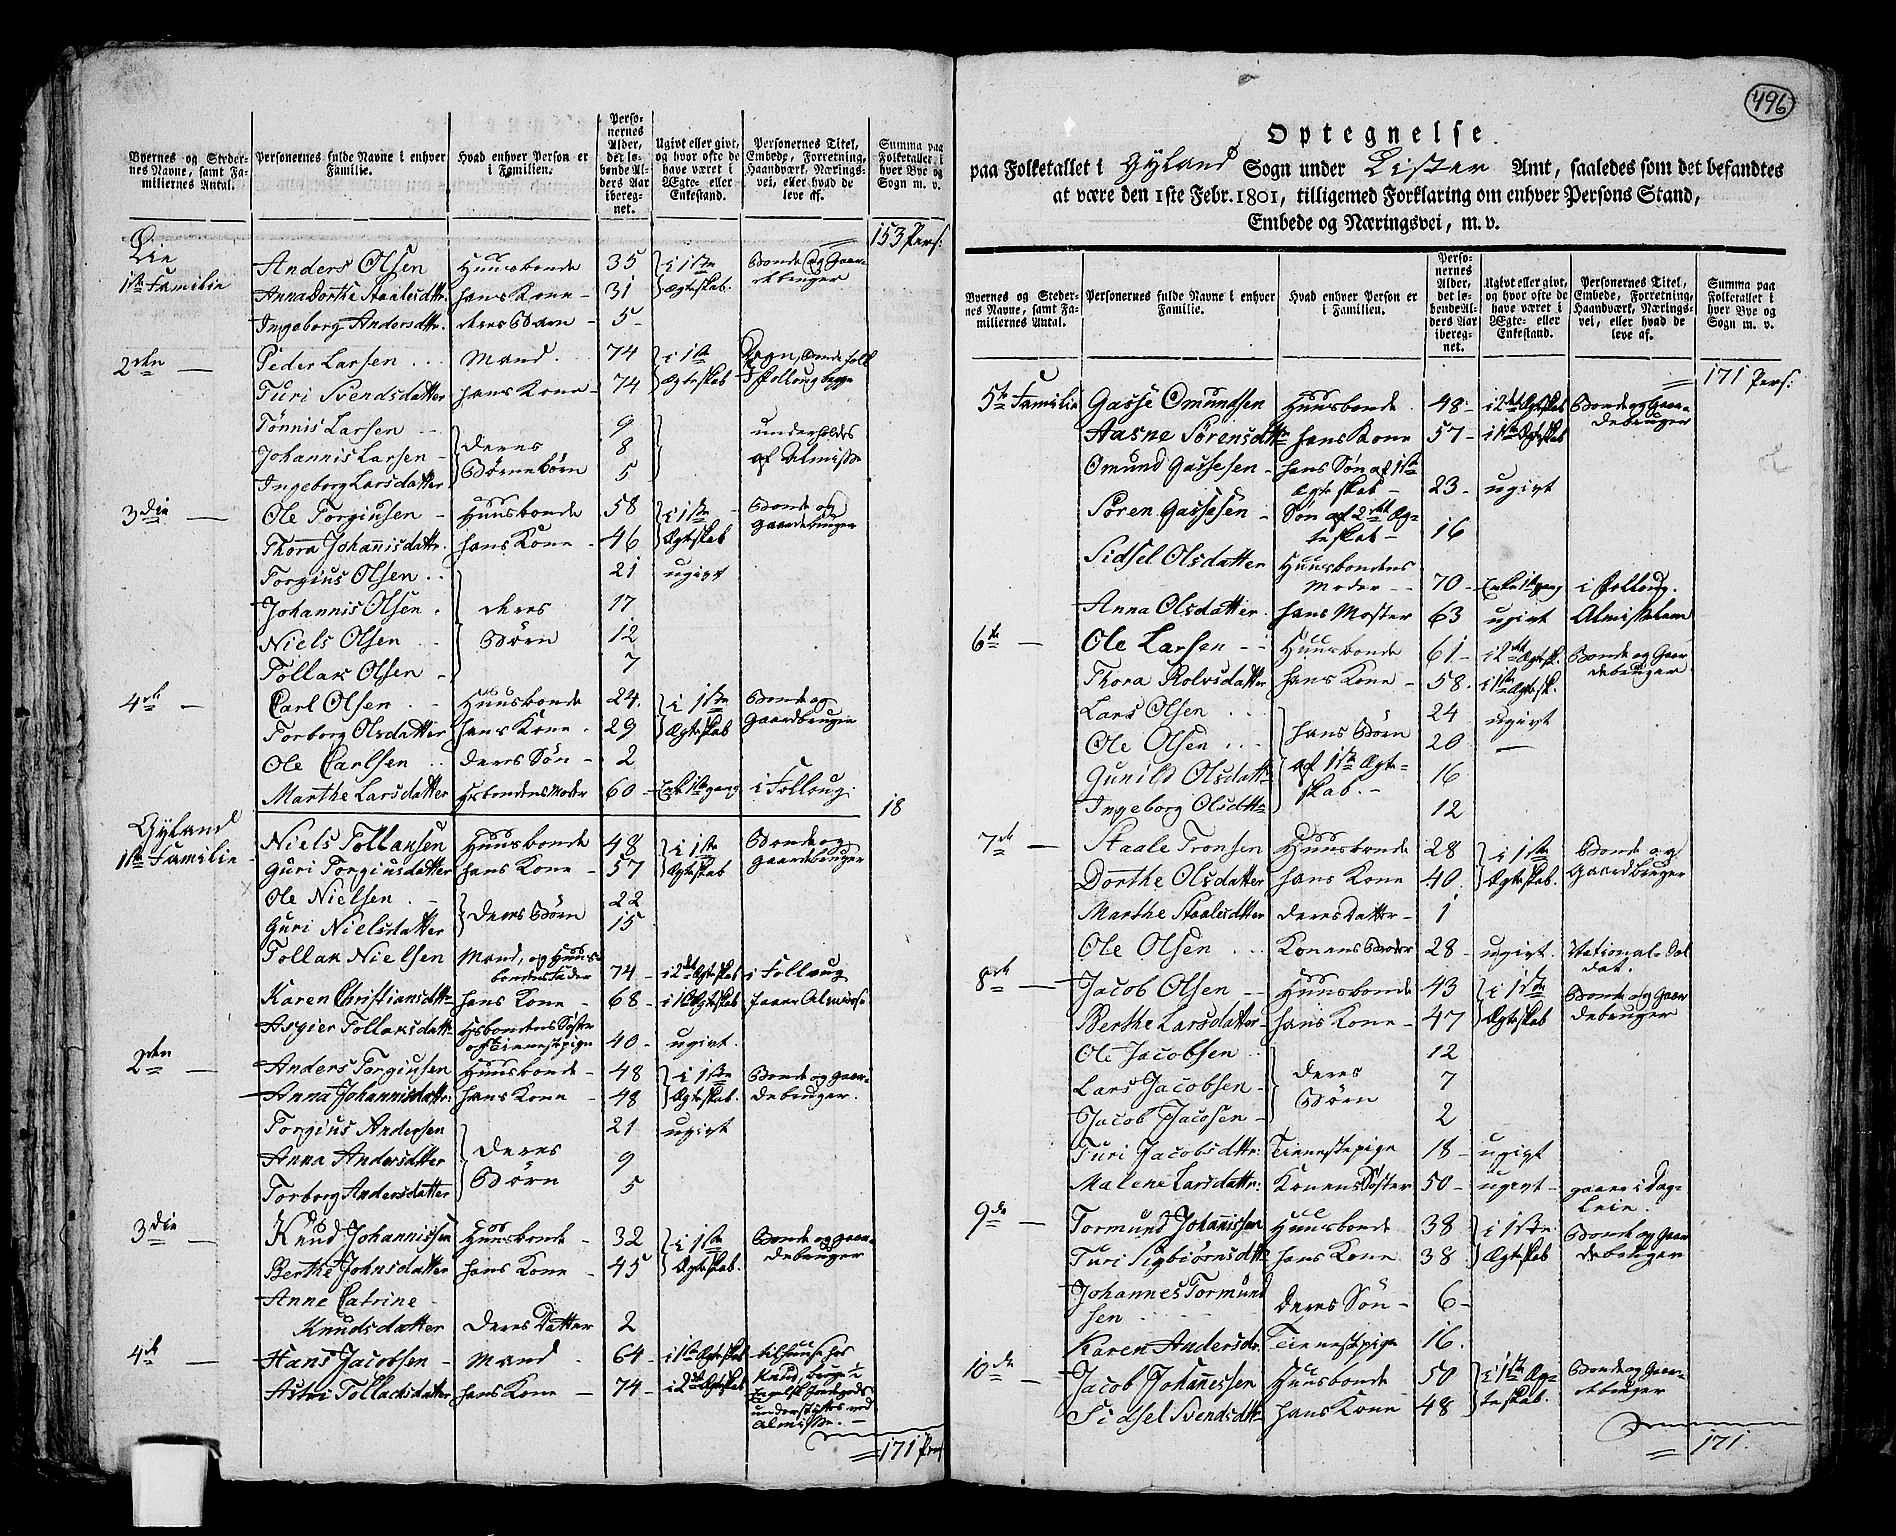 Byernes og Steder-
nes Navne, samt Fa-
miliernes Antal.
Personernes fulde Navne i enhver
Familie.
Hvad enhver Person er
i Familien.
Perso-
nernes
Alder,
det lø-
bende Al-
ders Aar
ibereg-
net.
Ugivt eller givt,
og hvor ofte de
have været i
Ægte- eller
Enkestand.
Personernes Titel,
Embede, Forretning,
Haandværk, Nærings-
vei, eller hvad de
leve af.
Summa paa
Folketallet i
hver Bye og
Sogn m. v.
153 Pers:
Øie
1ste Familie Anders Olsen Huusbonde 35 i 1ste Bonde og Gaar-
Anna Dorthe Staalesdttr. hans Kone 31 Ægteskab. debruger
Ingeborg Andersdttr. deres Barn 5
2den Peder Larsen Mand. 74 i 1ste
Turi Svendsdatter hans Kone 74 Ægteskab
Tønnis Larsen 9
Johannis Larsen deres 8 underholdes
Ingeborg Larsdatter Børnebørn 5 af Almisse
3die Ole Torgiusen Huusbonde 58 i 1ste Bonde og
Thora Johannisdattr. hans Kone 46 Ægteskab Gaardbruger
Torgius Olsen 21 ugivt
Johannis Olsen deres 17
Niels Olsen Børn 12
Tollak Olsen 7
4de Carl Olsen Huusbonde 24 i 1ste Bonde og
Torborg Olsdatter hans Kone 29 Ægteskab Gaardbruger
Ole Carlsen deres Søn 2
Marthe Larsdatter Hsbondens Moder 60 Enke 1te gang i Follaug. 18
Gyland
1ste Familie Niels Tollaksen Huusbonde 48 i 1ste Bonde og
Guri Torgiusdatter hans Kone 57 Ægteskab Gaardbruger
Ole Nielsen 22
Guri Nielsdatter deres Børn 15
Tollak Nielsen Mand, og Huus-
bondens Fader 74 i 2det Ægteskab i Follaug
Karen Christiansdttr hans Kone 68 i 1te Ægteskab faaer Almisse
Asgier Tollaksdattr Hsbondens Søster
og Tienestepige 40 ugivt.
2den Anders Torgiusen Huusbonde 48 i 1ste Bonde og Gaar-
Anna Johannisdattr. hans Kone 48 Ægteskab. debruger.
Torgius Andersen 21 ugivt
Anna Andersdatter deres 9
Torborg Andersdatter Børn 5
3die Knud Johannissen Huusbonde 32 i 1ste Bonde og Gaar-
Berthe Johnsdatter hans Kone 45 Ægteskab. debruger
Anne Catrine
Knudsdatter deres Datter 2
4de Hans Jacobsen Mand 64 i 1ste Ægteskab tilhuuse hos
Astri Tollachsdatter hans Kone 74 i 2det Ægteskab
understøttes ved
Almisse.
171 Pers
496
Optegnelse
paa Folketallet i Gyland Sogn under Lister Amt, saaledes som det befandtes
at være den 1ste Febr. 1801, tilligemed Forklaring om enhver Persons Stand,
Embede og Næringsvei, m. v.
Byernes og Steder-
nes Navne, samt Fa-
miliernes Antal.
Personernes fulde Navne i enhver
Familie.
Hvad enhver Person er
i Familien.
Perso-
nernes
Alder,
det lø-
bende Al-
ders Aar
ibereg-
net.
Ugivt eller givt,
og hvor ofte de
have været i
Ægte- eller
Enkestand.
Personernes Titel,
Embede, Forretning,
Haandværk, Nærings-
vei, eller hvad de
leve af.
Summa paa
Folketallet i
hver Bye og
Sogn m. v.
171 Pers:
5te Familie Gasse Omundsen Huusbonde 48 i 2det Ægteskab Bonde og Gaar-
debruger
Aasne Sørensdttr hans Kone 57 i 1ste Ægteskab
Omund Gassesen hans Søn af 1ste
Ægteskab 23 ugivt
Søren Gassesen Søn af 2det Æg-
teskab 16
Sidsel Olsdatter Huusbondens
Moder 70 Enke 1te gang i Follaug.
Anna Olsdatter hans Moster 63 ugivt Almisselem
6te Ole Larsen Huusbonde 61 i 2det Ægtesk. Bonde og Gaar
Thora Rolvsdatter hans Kone 58 i 1ste Ægtesk. debruger
Lars Olsen 24 ugivt
Ole Olsen hans Børn 20 —
Gunild Olsdattr af 1ste Ægte- 16
Ingeborg Olsdttr skab. 12
7de Staale Tronsen Huusbonde 28 i 1ste Bonde og
Dorthe Olsdatter hans Kone 40 Ægteskab. Gaardbruger
Marthe Staalesdtter deres Datter 1
Ole Olsen Konens Broder 28 ugivt. National-Sol
dat.
8de Jacob Olsen Huusbonde 43 i 1ste Bonde og Gaar
Berthe Larsdatter hans Kone 47 Ægteskab debruger
Ole Jacobsen 12
Lars Jacobsen deres 7
Jacob Jacosen Børn 2
Turi Jacobsdttr: Tienestepige 18 ugivt
Malene Larsdattr: Konens Søster 50 ugivt gaaer i Dag-
leie.
9de Tormund Johannissen Huusbonde 38 i 1ste Bonde og Gaar
Turi Sigbiørnsdttr hans Kone 38 Ægteskab debruger
Johannes Tormund
sen deres Søn 6
Karen Andersdr. Tienestepige 16.
10de Jacob Johannessen Huusbonde 50 i 1ste Æg- Bonde og Gaar-
Sidsel Svendsdttr hans Kone 48 teskab. debruger
171.